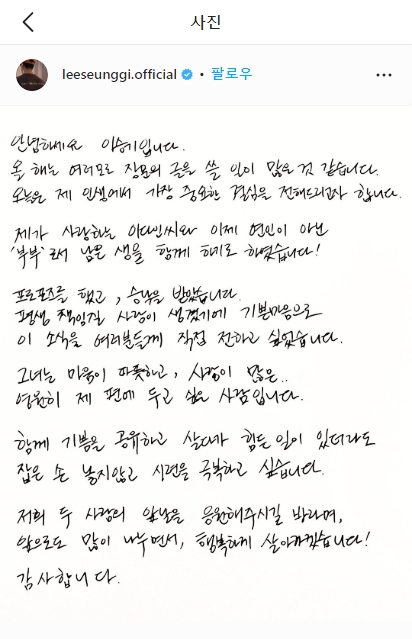 사진
leeseunggi.official • 팔로우
안녕하세요 이승기입니다.
올 해는 여러모로 장문의 글을 쓸 일이 많은 것 같습니다.
오늘은 제 인생에서 가장 중요한 결심을 전해드리고자 합니다.
제가 사랑하는 이다인씨와 이제 연인이 아닌
'부부'로서 남은 생을 함께 하기로 하였습니다!
프로포즈를 했고, 승낙을 받았습니다.
평생 책임질 사람이 생겼기에 기쁜마음으로
이 소식을 여러분들께 직접 전하고 싶었습니다.
그녀는 마음이 따뜻하고, 사랑이 많은..
영원히 제 편에 두고 싶은 사람입니다.
함께 기쁨을 공유하고 살다가 힘든 일이 있더라도
잡은 손 놓지않고 시련을 극복하고 싶습니다.
저희 두 사람의 앞날을 응원해주시길 바라며,
앞으로도 많이 나누면서, 행복하게 살아가겠습니다!
감사합니다.